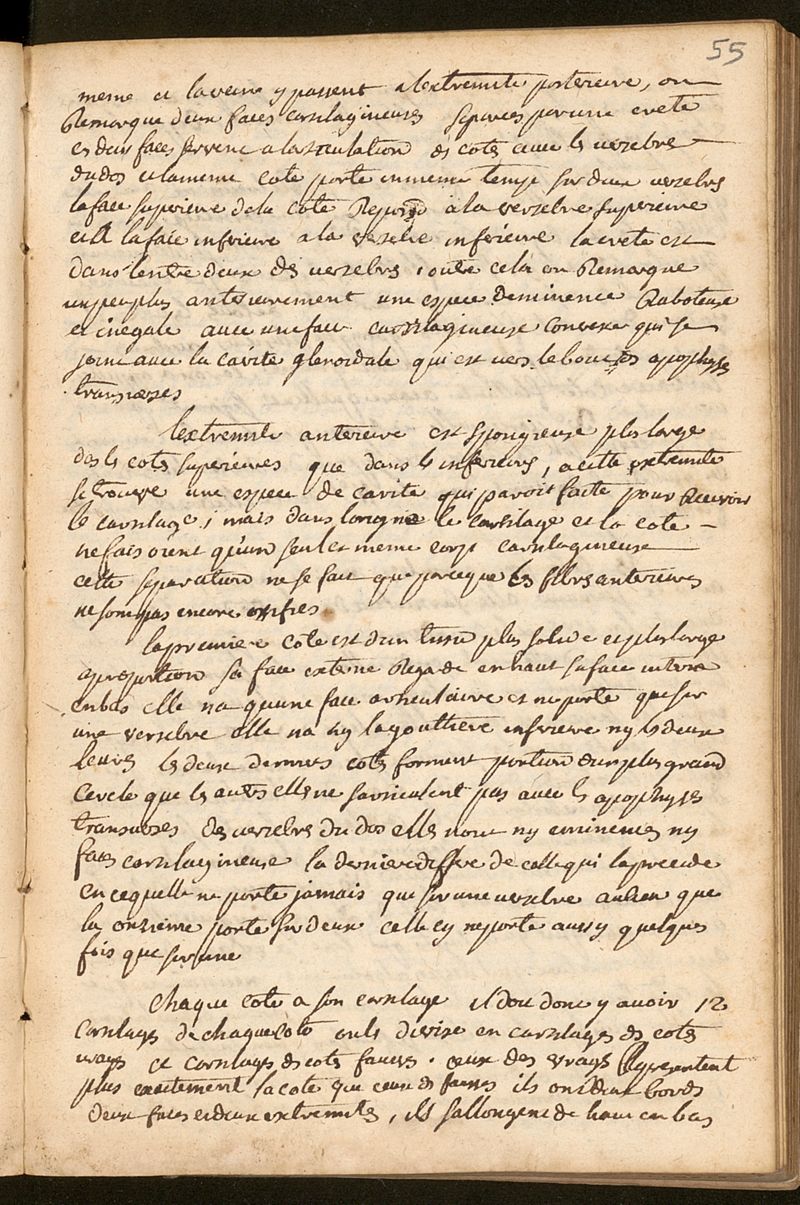 55
meme et la veine y passent a lextremité posterieure, on
Remarque deux faces carsilagineuses separees par une crete
ces deux faces servent a larticulation des cotes avec les verzebres
du dos et la meme cote porte en meme temps sur deux verzebres
la face superieure de la cote Repond a la verzebre superieure
et la face inferieure a la verzebre inferieure la crete est
dans lentre deux des verzebres, outre cela on Remarque
un peu plus anterieurement une espece deminence Raboteuse
et inegale avec une face carsilagineuse convexe qui se
joint avec la cavite glenoidale qui est vers le bout des apophyses
transverses
lextremite anterieure est spongieuse plus large
dans les cotes superieures que dans les inferieures, a cette extremite
se trouve une espece de cavite qui paroit faite pour Recevoir
le carsilage; mais dans lorigine le carsilage et la cote
ne faisoient qu'un seul et meme corps carsilagineuse
cette separation ne se fait que parceque les fibres anterieures
ne sont pas encore ossifies
la premiere cote est d'un tissu plus solide et plus large
a proportion sa face externe Regarde en haut sa face interne
en bas elle na quune face articulaire et ne porte que sur
une verzebre elle na ny la gouttiere inferieure ny les deux
levres les deux dernieres cotes forment portion dun plus grand
Cercle que les autres elles ne sarticulent pas avec les apophyses
transverses des verzebres du dos elles nont ny eminences ny
faces carsilagineuse la derniere differe de celle qui la precede
en cequelle ne porte jamais que sur une verzebre au lieu que
la onzieme porte sur deux celle cy ne porte aussy quelques
fois que sur une
Chaque cote a son carsilage il doit donc y avoir 12
Carsilages de chaque coté on les divise en carsilages des cotes
vrays et carsilages des cotes fausses. ceux des vrays Representent
plus exactement la cote que ceux des fausses ils ont deux bords
deux faces et deux extremites, ils sallongent de haut en bas